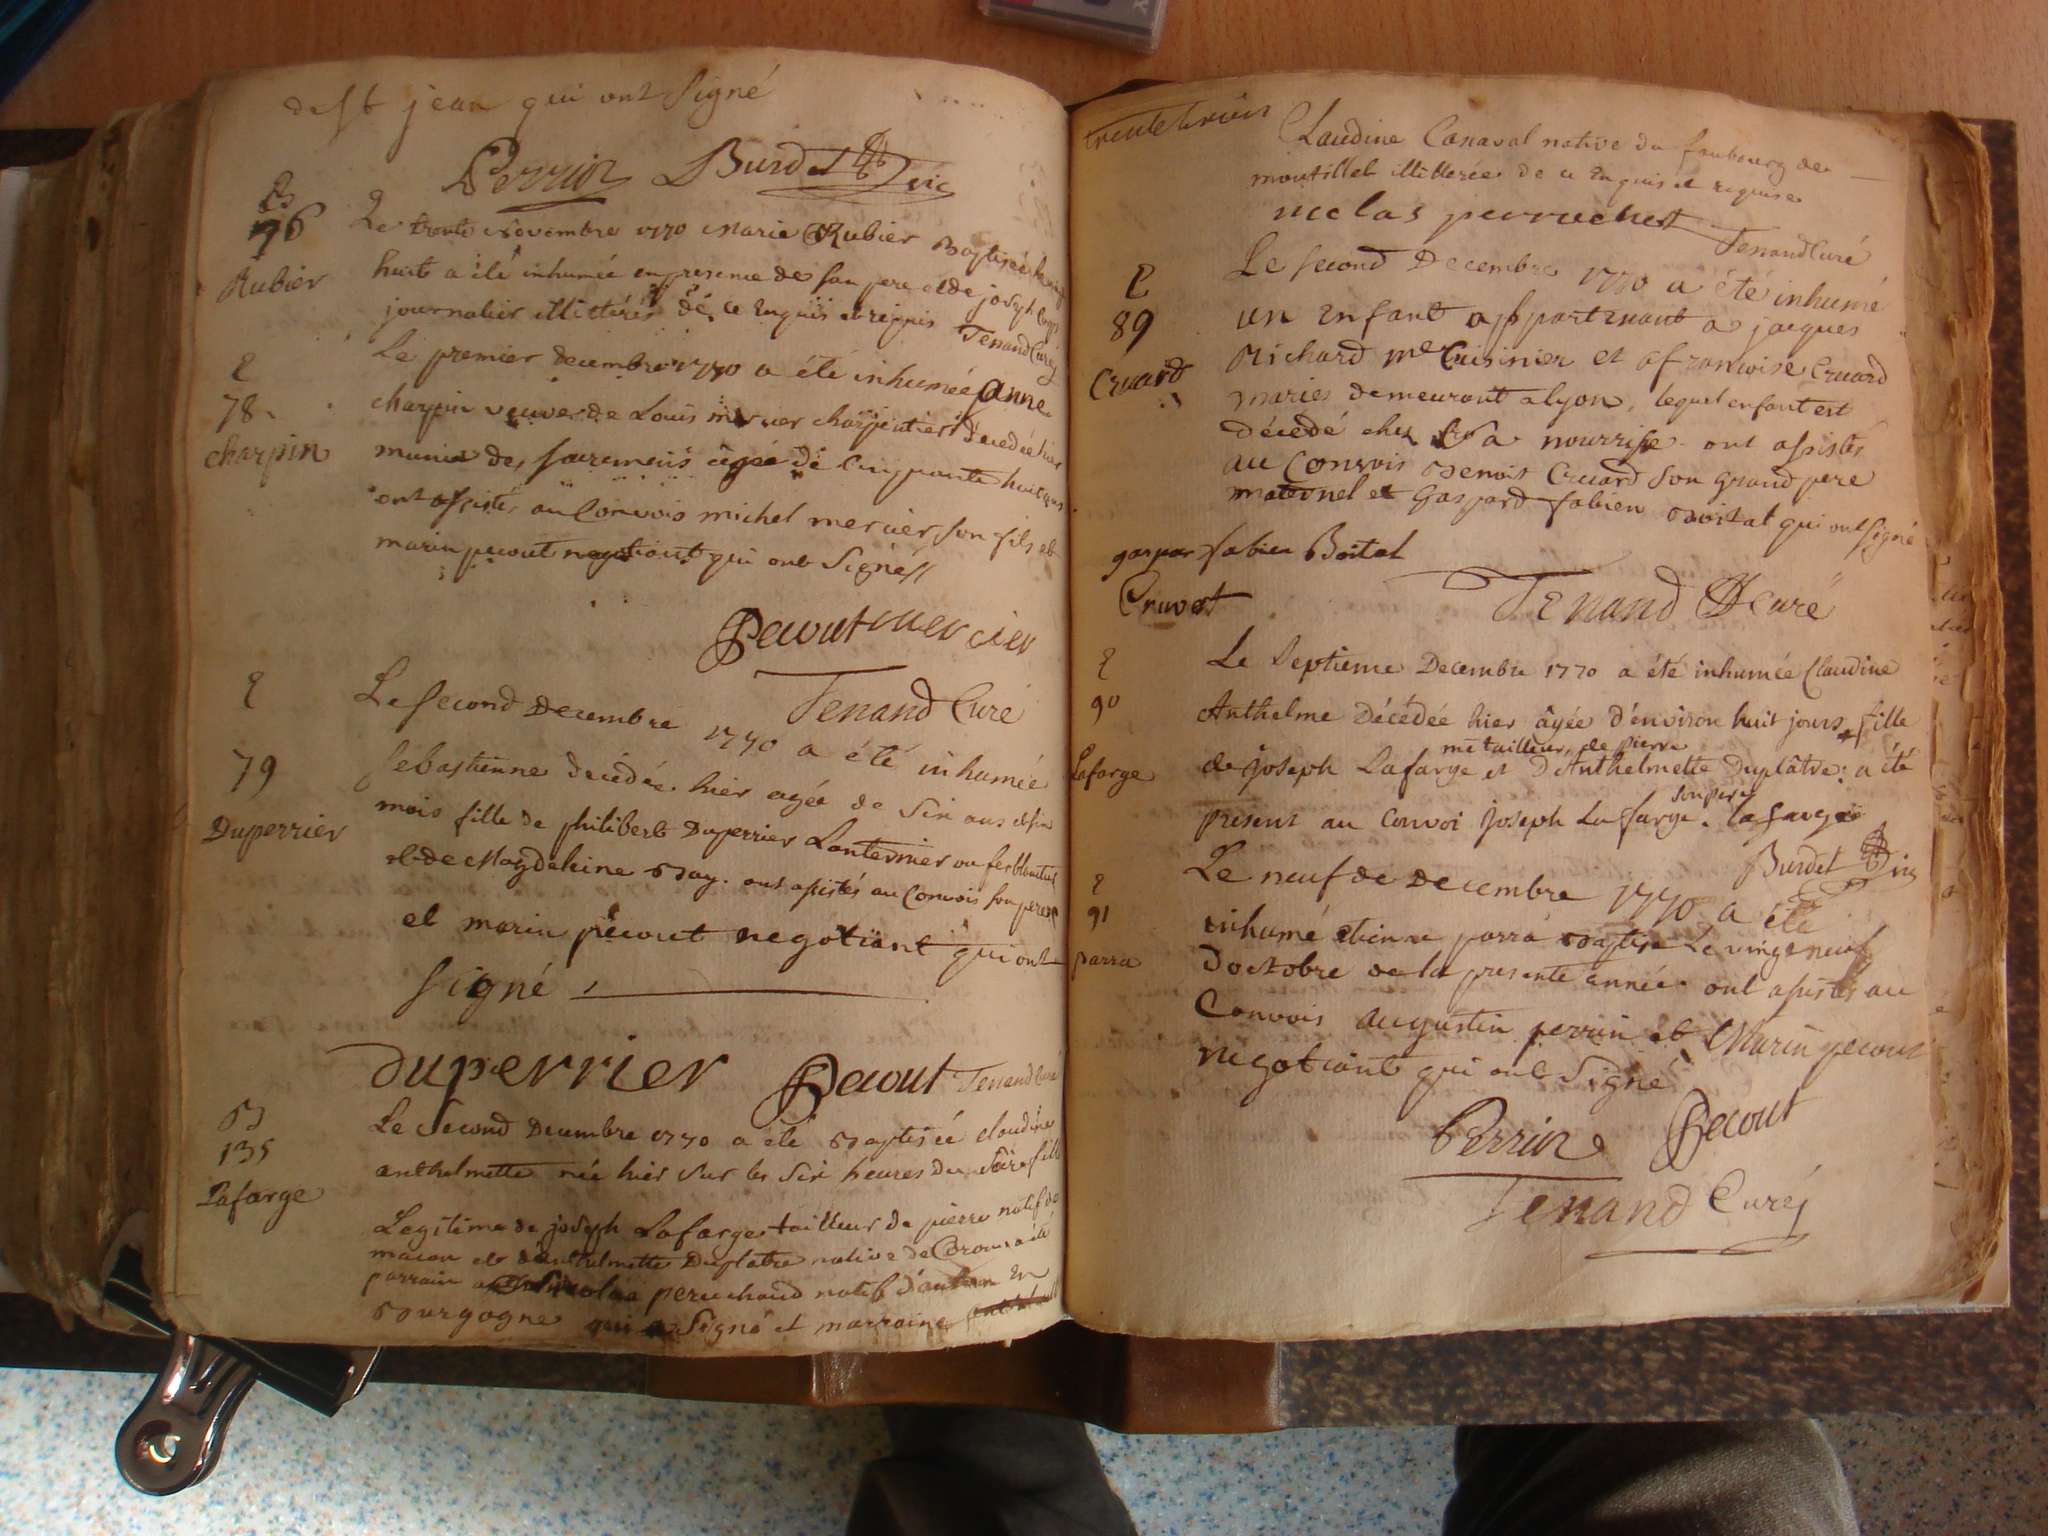 de St jean qui ont signé
Perrin Burdet Vic
76
Rubier
Le trente novembre 1770 Marie Rubier Baptisée
huit a été inhumée en presence de son pere et de joseph
journalier illitterés de ce Enquis et requis Tenand Curé
E
78
charpin
Le premier decembre 1770 a été inhumée Anne
charpin veuve de Louis mercier charpentier decedée hier
munie des sacremens agée de cinquante huit ans
ont assistés au Convois michel mercier son fils et
marin pecout negotiant qui ont signés
Pecout mercier
Tenand Curé
E
79
Duperrier
Le second Decembre 1770 a été inhumée
sebastienne decédée hier agée de six ans et six
mois fille de philibert Duperrier Lanternier ou ferblantier
et de Magdeleine Bay. ont assistés au Convois son pere
et marin pecout negotiant qui ont
signé
duperrier Pecout Tenand Curé
B
135
Lafarge
Le Second Decembre 1770 a été Baptisée claudine
anthelmette née hier sur les six heures du soir fille
Legitime de joseph Lafarge tailleur de pierre natif de
macon et d'anthelmette Duplatre native de a été
parrain nicolas peruchaud natif d'autun En
Bourgogne qui a signé et marraine
trente trois
Claudine Canaval native du faubourg de
montillet illitterée de ce Enquis et requise
nicolas perruchest Tenand Curé
E
89
Cruard
Le second Decembre 1770 a été inhumé
un Enfant appartenant a jacques
Richard me Cuisinier et francoise Cruard
maries demeurant a lyon, lequel enfant est
décedé chez sa nourrise. ont assistés
au Convois Benoit Cruard son grand pere
maternel et Gaspard fabien Boitat qui ont signé
gaspar fabien Boitat
Cruvot Tenand Curé
E
90
Lafarge
Le Septieme Decembre 1770 a été inhumée Claudine
Anthelme Décédée hier âgée d'environ huit jours, fille
me tailleur de pierre
de joseph Lafarge et D'Anthelmette Duplâtre: a été
son pere
present au Convoi joseph Lafarge. lafarge
Burdet Vic
E
91
parra
Le neuf de Decembre 1770 a été
inhumé etienne parra Baptisé Le vingt neuf
d'octobre de la presente année. ont assistés au
Convois augustin perrin et Marin pecout
negotiant qui ont signé
Perrin Pecout
Tenand Curé